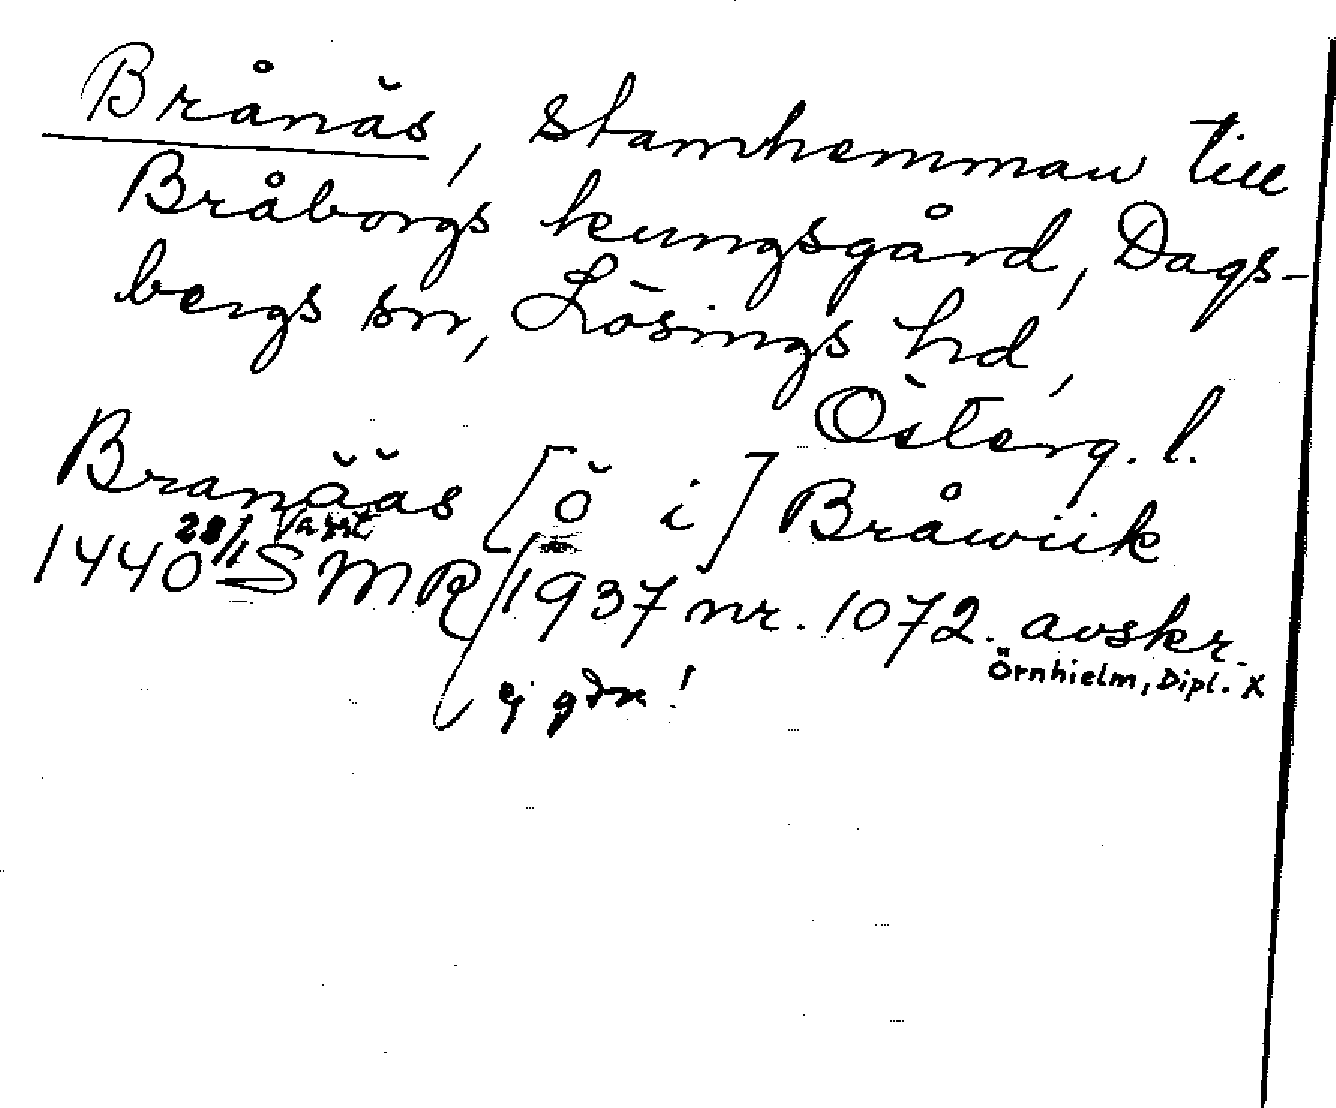 Brånäs, stamhemman till
Bråborgs kungsgård, Dags-
bergs sn, Lösings hd,
Österg. l.
Branääs [ö i] Bråwiik
1440 28/1 SMR 1937 nr. 1072. avskr.
Örnhielm, Dipl. X
ej gdn!